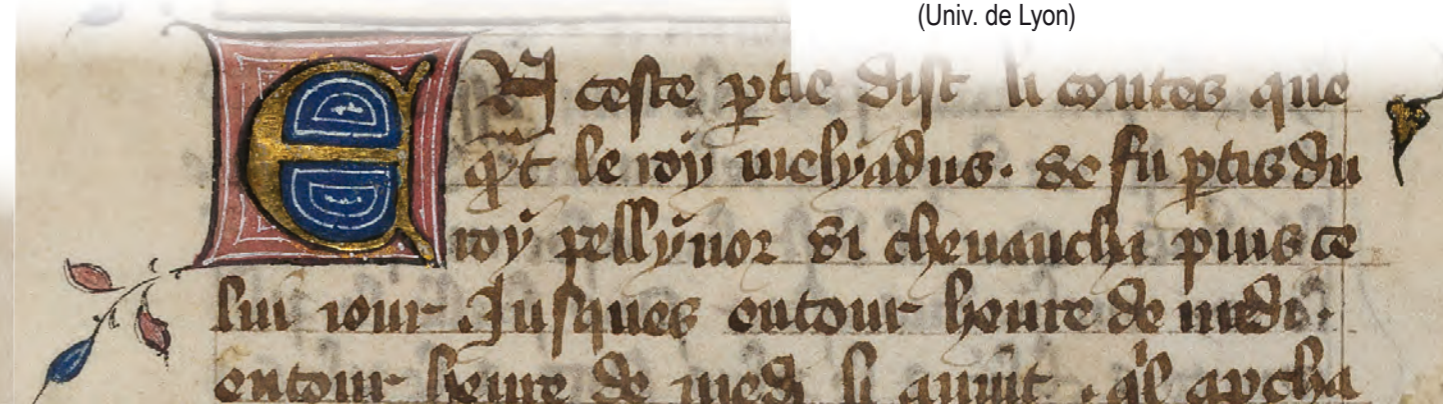 (Univ. de Lyon)
En ceste ptie dist li contes que
qͣt le roy melyadus. se fu ptis du
roy pellynor si cheuaucha puis ce
lui iour Jusques entour heure de midi.
entour heure de midi li auint. ql apcha